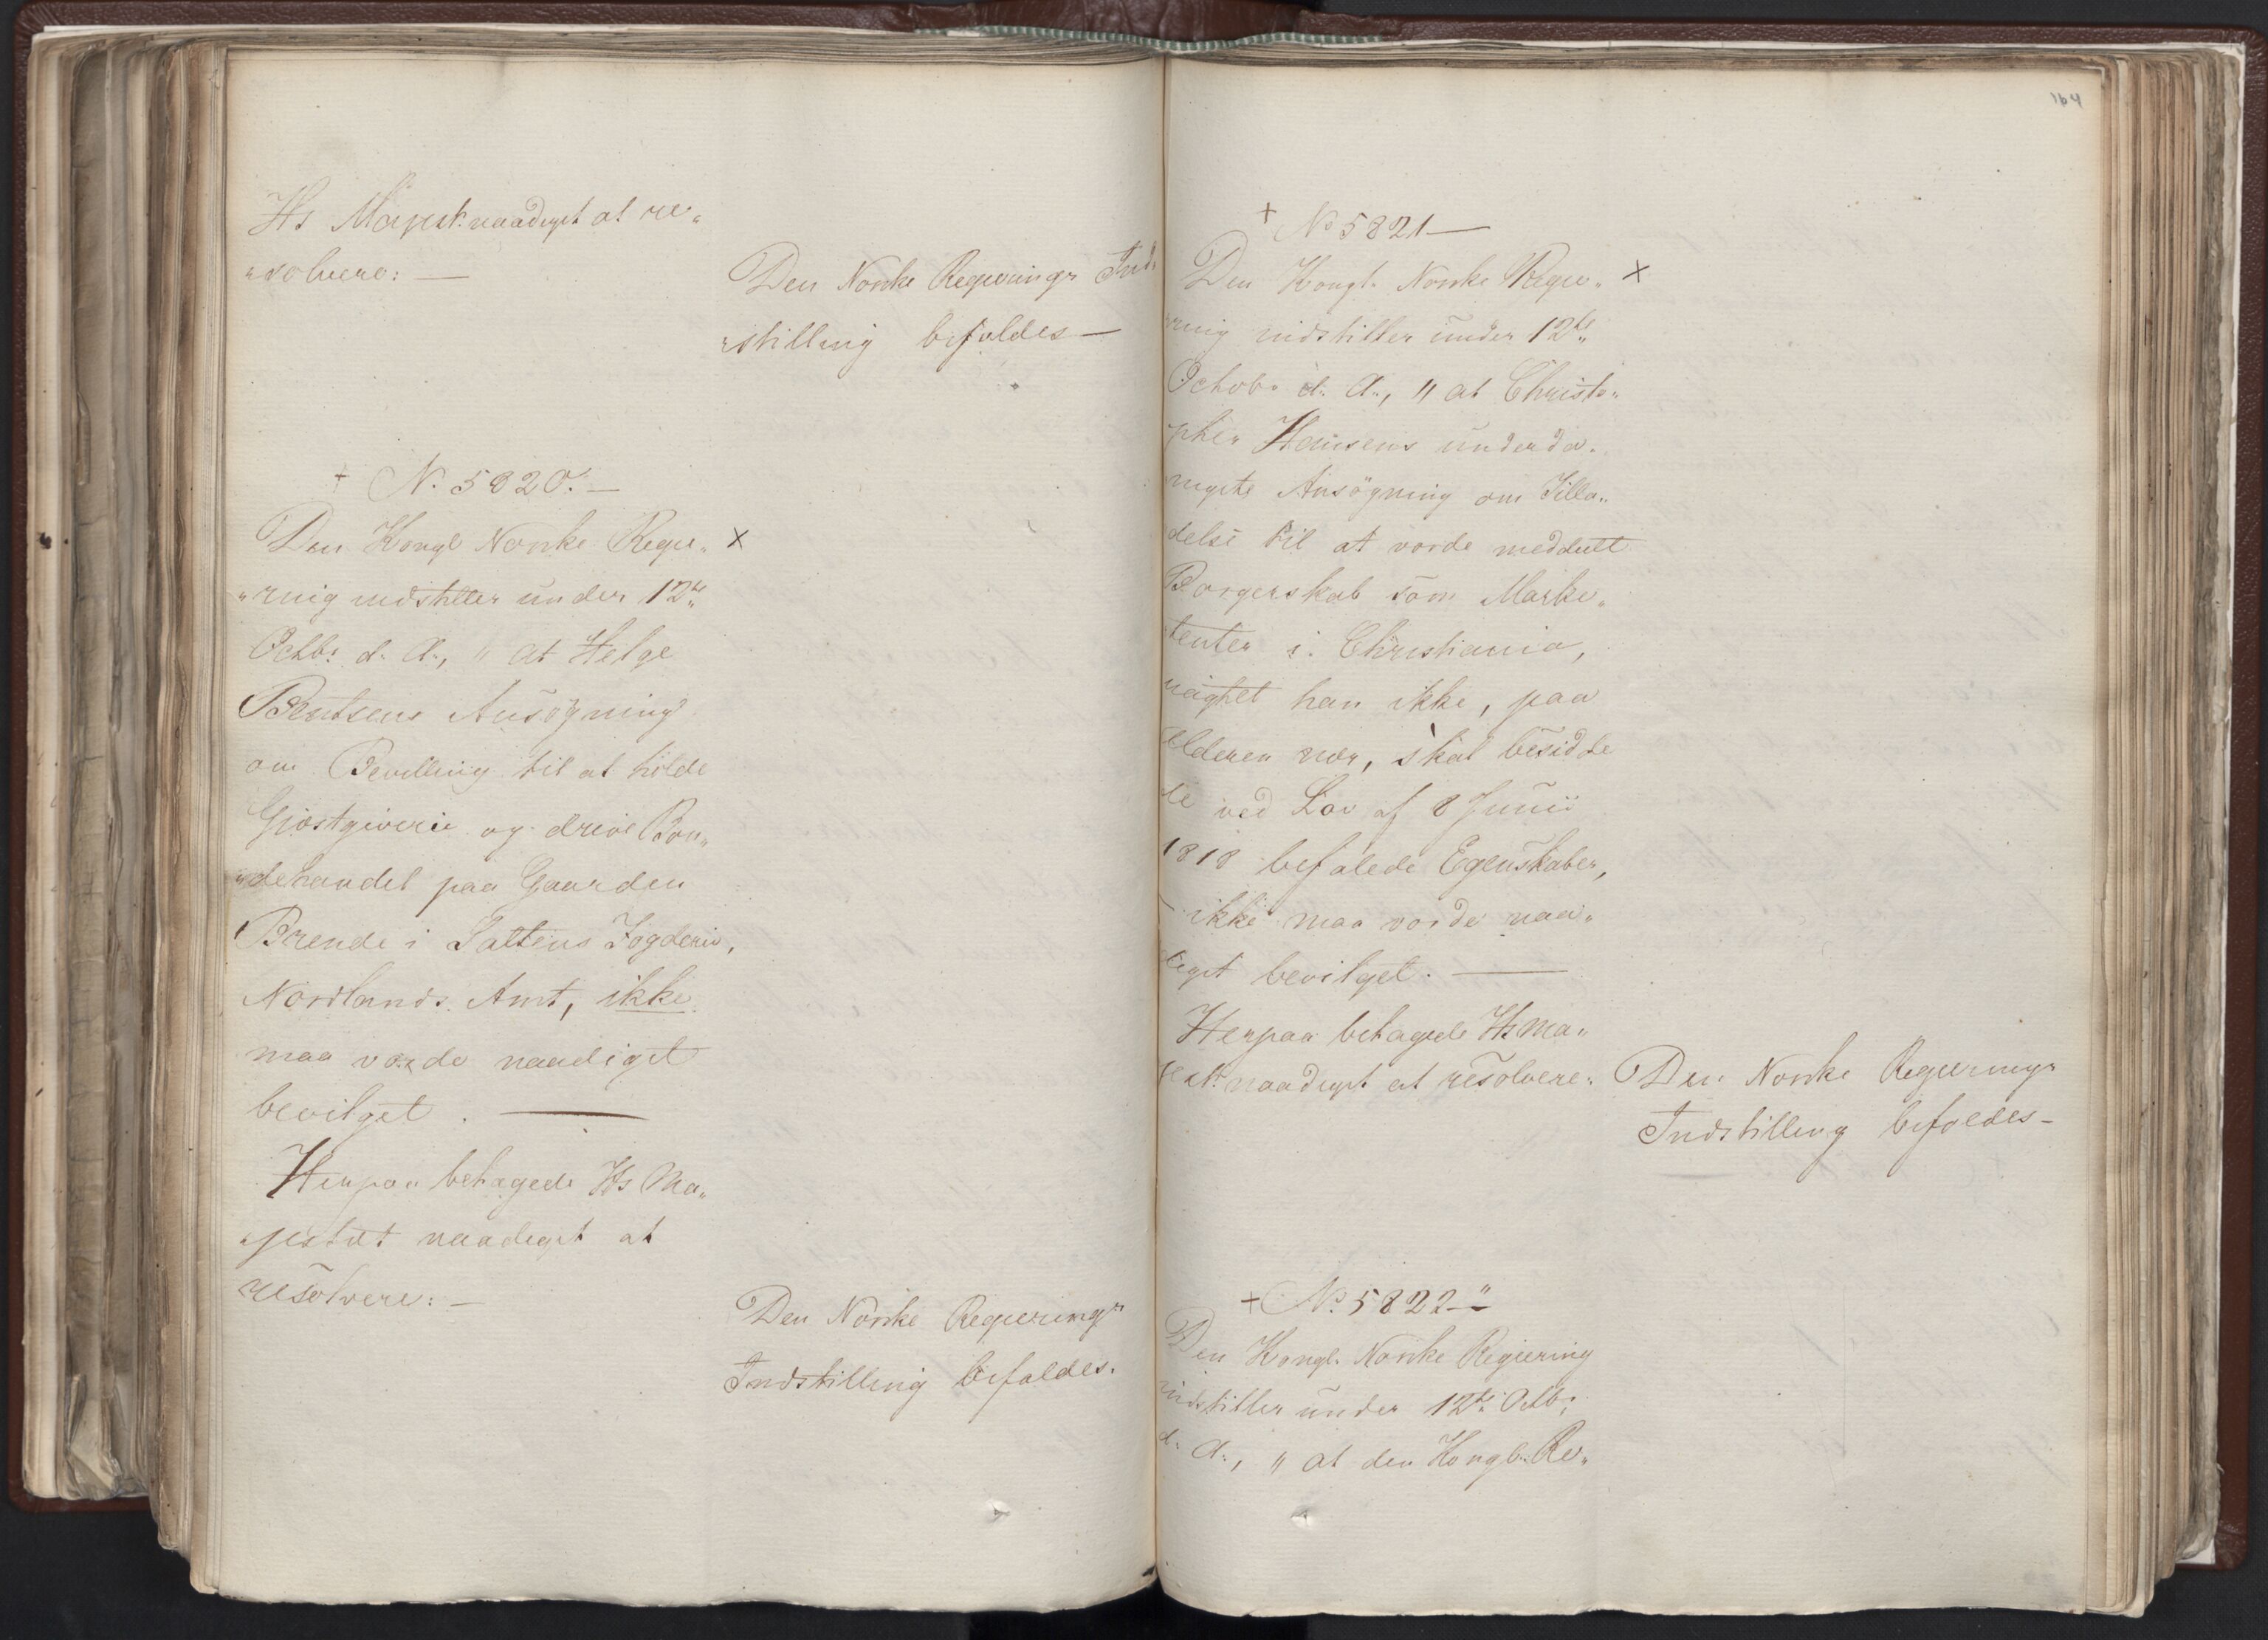 Hs Majest: naadigst at re„
„solvere: —
Den Norske Regierings Ind„
„stilling bifaldes —
+ N. 5820. —
Den Kongl Norske Regie„ x
„ring indstiller under 12te
Octb: d. A., „ at Helge
Bentsens Ansögning
om Bevilling til at holde
Giæstgiverie og drive Bon„
„dehandel paa Gaarden
Brende i Saltens Fogderie,
Nordlands Amt, ikke
maa vorde naadigst
bevilget. —
Herpaa behagede Hs Ma„
„jestæt naadigst at
resolvere: —
Den Norske Regierings
Indstilling bifaldes.
164
+ No 5821 —
Den Kongl. Norske Regie„ x
ring indstiller under 12te
Octob. d. A., „ at Christo„
pher Hansens underda„
nigste Ansögning om Tilla„
delse til at vorde meddeelt
Borgerskab som Marke„
tenter i Christiania,
uagtet han ikke, paa
Alderen nær, skal besidde
de ved Lov af 8 Junii
1818 befalede Egenskaber,
ikke maa vorde naa„
digst bevilget. —
Herpaa behagede Hs Ma„
jest: naadigst at resolvere„
Den Norske Regierings
Indstilling bifaldes —
+ No 5822 —
Den Kongl. Norske Regiering
indstiller under 12te Octb:
d. A., „ at den Kongl. Re„